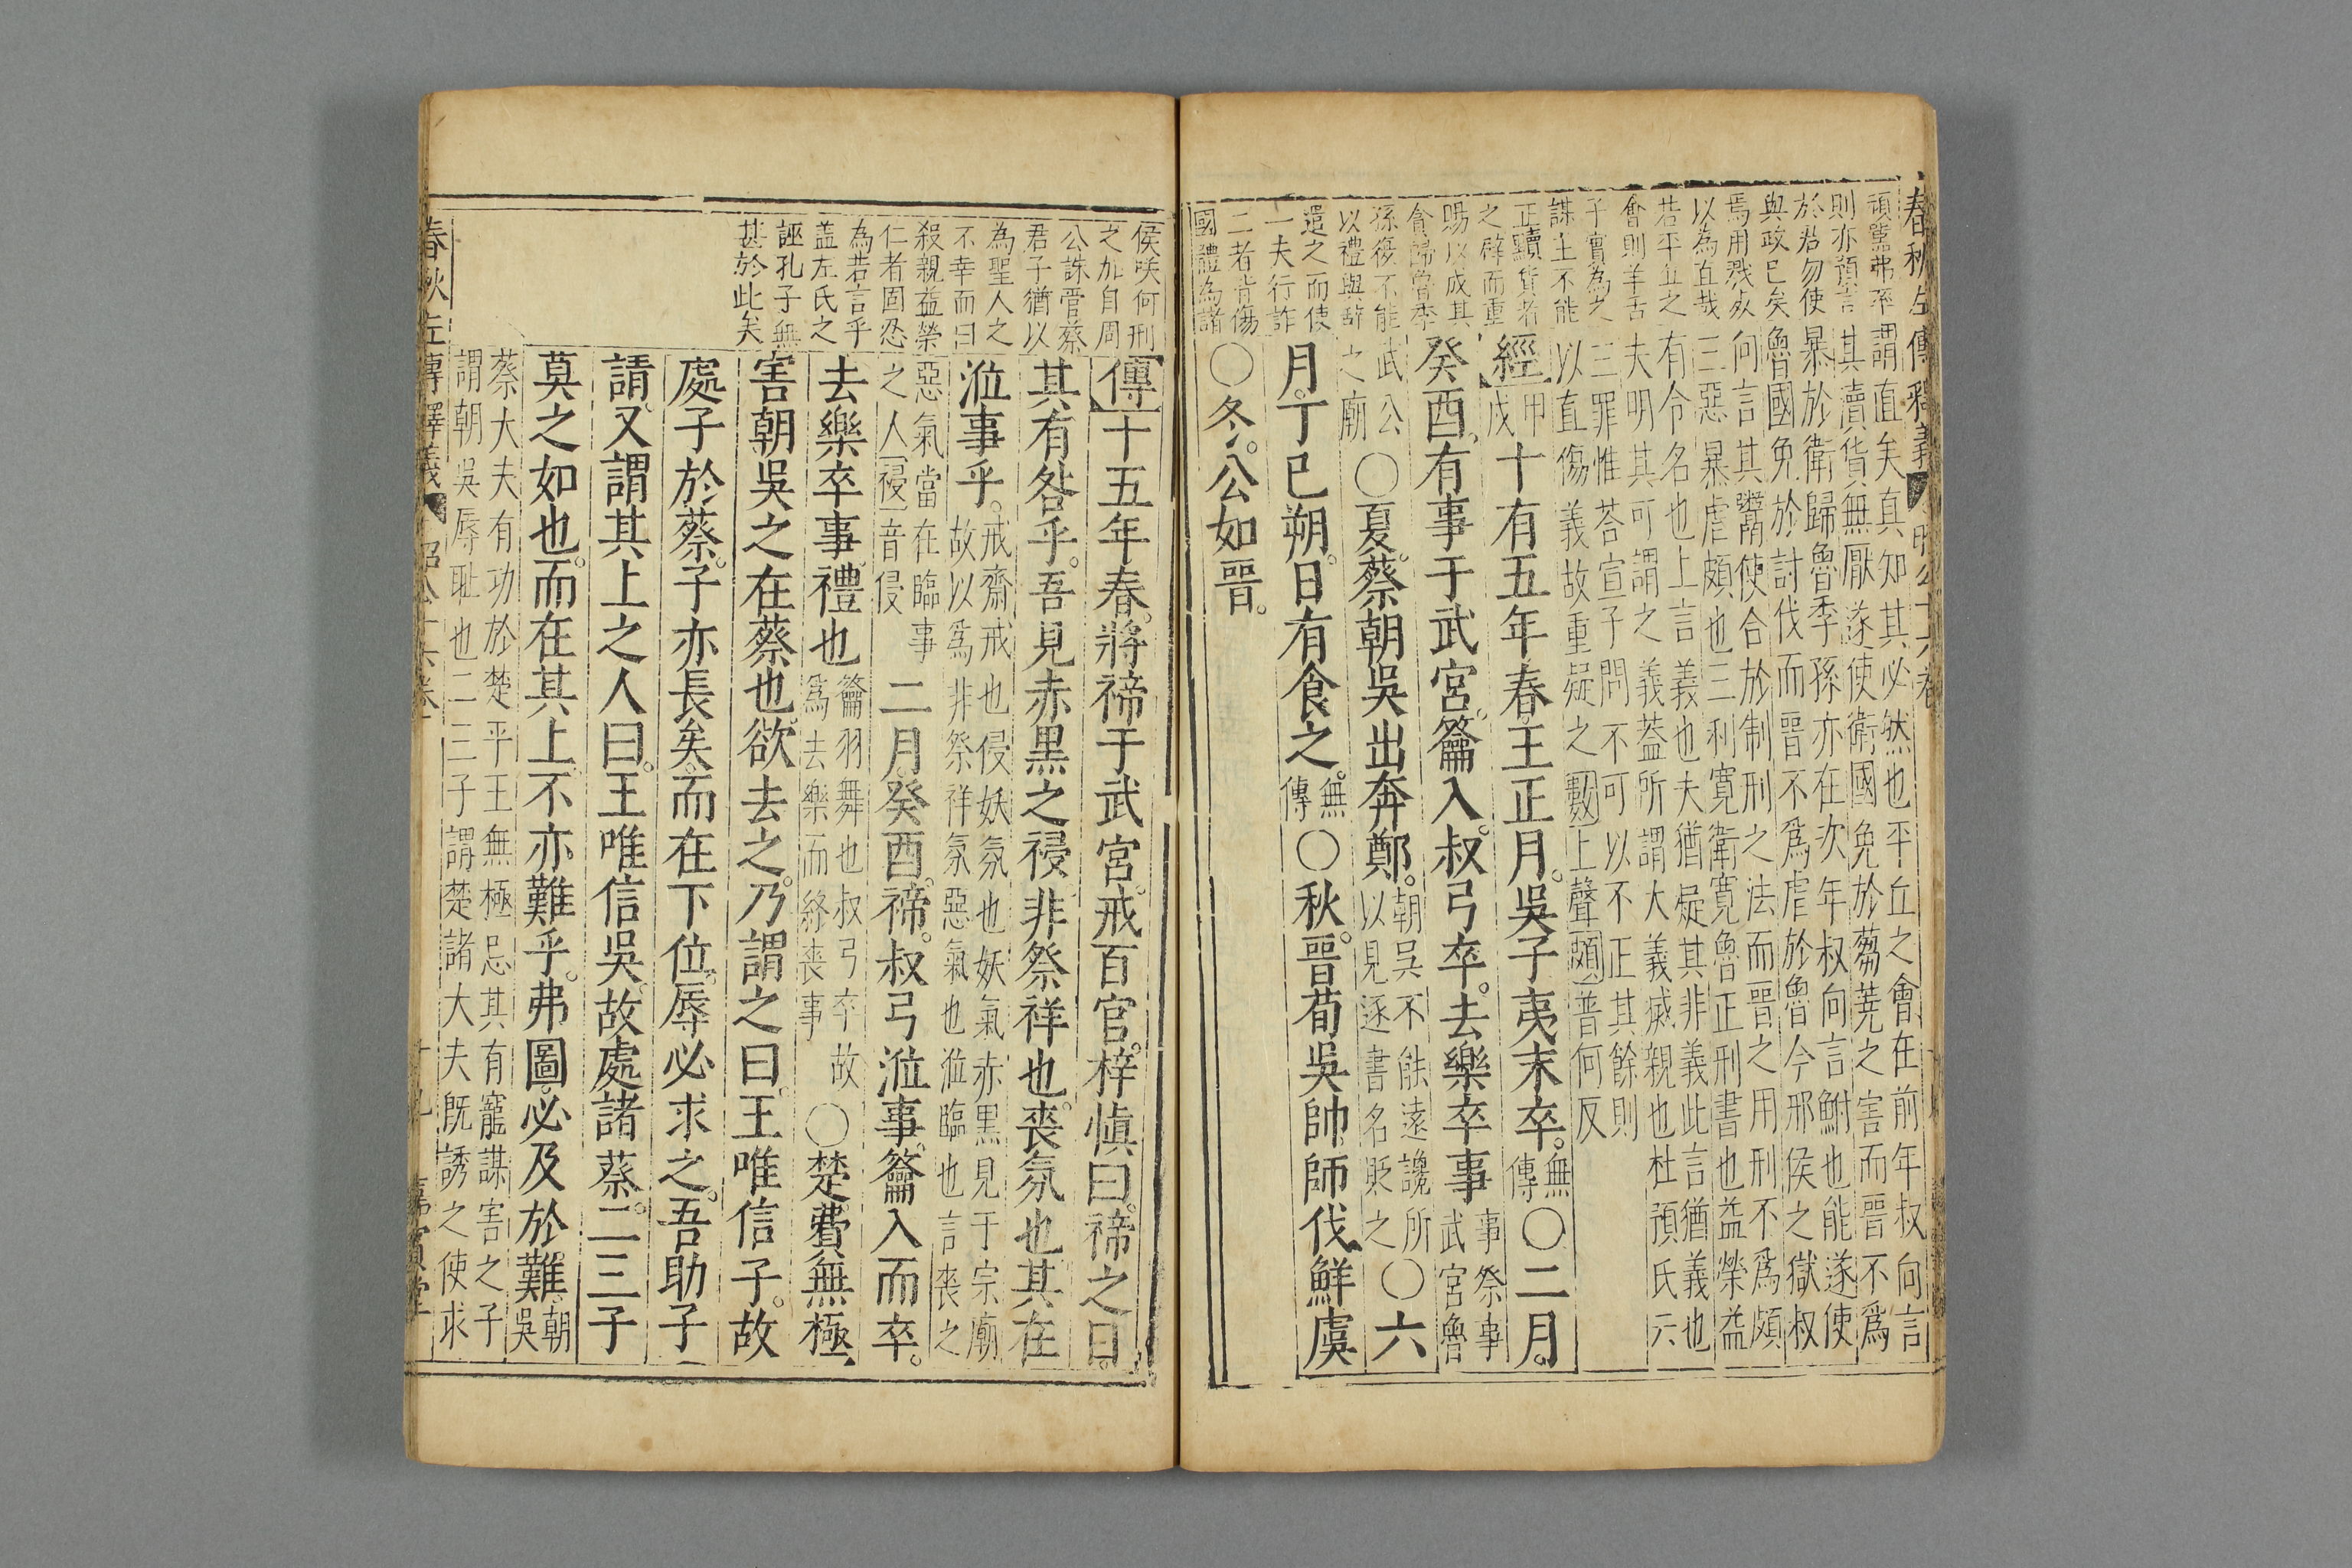 春秋左傳釋義 昭公十六卷
則亦預言
於君勿使
與政已矣
以為直哉
若平丘之
會則羊舌
子實為之
謀主不能
正黷貨者
之辟而重
賜以成其
貪歸魯季
孫復不能
以禮與辭
遣之而使
一夫行詐
二者皆傷
國體為諸
謂直矣真知其必然也平丘之會在前年叔向言
其瀆貨無厭遂使衛國免於芻蕘之害而晉不爲
暴於衛歸魯季孫亦在次年叔向言鮒也能遂使
魯國免於討伐而晉不爲虐於魯今邢侯之獄叔
向言其鬻使合於制刑之法而晉之用刑不爲頗
三惡暴虐頗也三利寛衛寛魯正刑書也益榮益
有令名也上言義也夫猶疑其非義此言猶義也
夫明其可謂之義葢所謂大義滅親也杜預氏云
三罪惟荅宣子問不可以不正其餘則
以直傷義故重疑之數上聲頗普何反
經甲戌十有五年春王正月。吳子夷末卒。無傳〇二月。
癸酉有事于武宮籥入。叔弓卒。去樂卒事事祭事武宮魯
武公之廟〇夏。蔡朝吳出奔鄭。朝吳不能遠讒所以見逐書名貶之〇六
月。丁巳朔。日有食之。無傳〇秋。晉荀吳帥師伐鮮虞
〇冬。公如晉。
侯咲何刑
之加自周
公誅管蔡
君子猶以
為聖人之
不幸而曰
殺親益榮
仁者固忍
為若言乎
盖左氏之
誣孔子無
甚於此矣
傳十五年春。將禘于武宮。戒百官。梓慎曰。禘之日。
其有咎乎。吾見赤黑之祲。非祭祥也。喪氛也其在
涖事乎。戒齋戒也侵妖氛也妖氣赤黑見于宗廟故以爲非祭祥氛惡氣也涖臨也言喪之
惡氣當在臨事之人祲音侵二月。癸酉。禘。叔弓涖事。籥入而卒。
去樂卒事。禮也籥羽舞也叔弓卒故爲去樂而終喪事〇楚費無極
害朝吳之在蔡也。欲去之。乃謂之曰。王唯信子。故
處子於蔡。子亦長矣。而在下位。辱必求之。吾助子
請。又謂其上之人曰。王唯信吳。故處諸蔡。二三子
莫之如也。而在其上。不亦難乎。弗圖。必及於難。朝吳
蔡大夫有功於楚平王無極忌其有寵謀害之子
謂朝吳辱耻也二三子謂楚諸大夫既誘之使求
春秋左傳釋義 昭公十六卷 十九